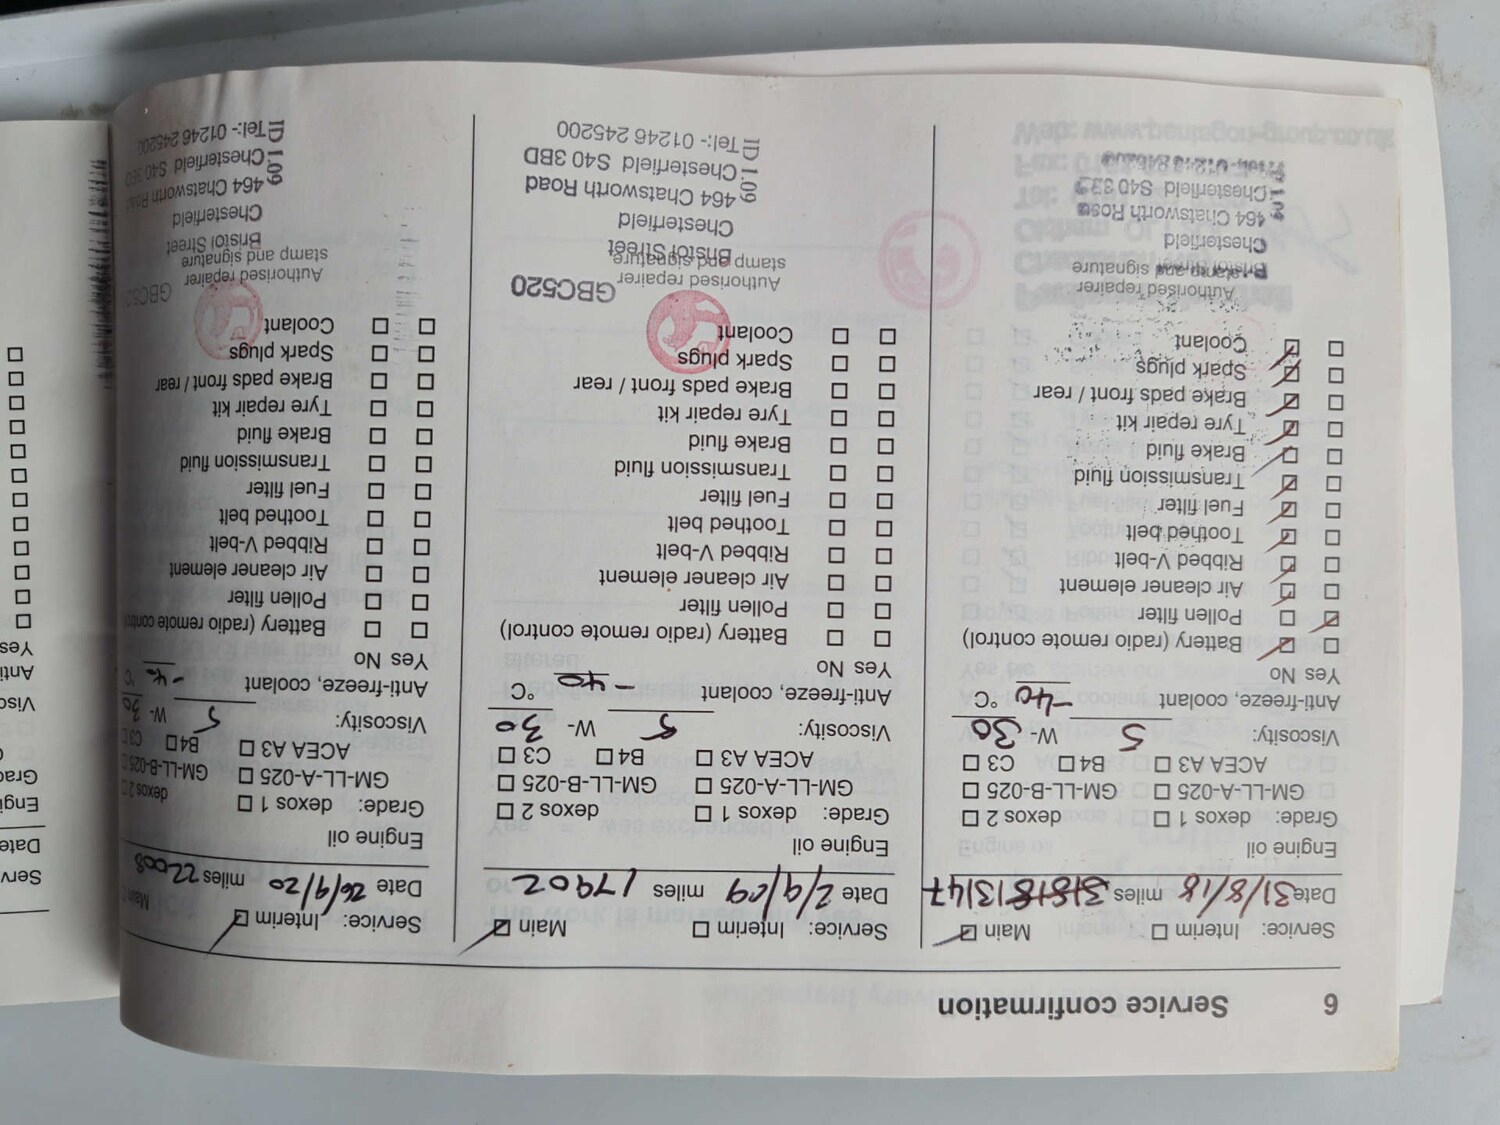 6 Service confirmation
Service: Interim Main
Date 31/8/18 miles 13147
Engine oil
Grade: dexos 1 dexos 2
GM-LL-A-025 GM-LL-B-025
ACEA A3 B4 C3
Viscosity: 5 W- 30
Anti-freeze, coolant -40 °C
Yes No
Battery (radio remote control)
Pollen filter
Air cleaner element
Ribbed V-belt
Toothed belt
Fuel filter
Transmission fluid
Brake fluid
Tyre repair kit
Brake pads front / rear
Spark plugs
Coolant
Authorised repairer
stamp and signature
Chesterfield
464 Chatsworth Road
Chesterfield S40
Service: Interim Main
Date 2/9/09 miles 17902
Engine oil
Grade: dexos 1 dexos 2
GM-LL-A-025 GM-LL-B-025
ACEA A3 B4 C3
Viscosity: 5 W- 30
Anti-freeze, coolant -40 °C
Yes No
Battery (radio remote control)
Pollen filter
Air cleaner element
Ribbed V-belt
Toothed belt
Fuel filter
Transmission fluid
Brake fluid
Tyre repair kit
Brake pads front / rear
Spark plugs
Coolant
Authorised repairer GBC520
stamp and signature
Bristol Street
Chesterfield
464 Chatsworth Road
Chesterfield S40 3BD
ID 1.09 Tel:- 01246 245200
Service: Interim Main
Date 26/9/20 miles 22008
Engine oil
Grade: dexos 1 dexos 2
GM-LL-A-025 GM-LL-B-025
ACEA A3 B4 C3
Viscosity: 5 W- 30
Anti-freeze, coolant -40 °C
Yes No
Battery (radio remote control
Pollen filter
Air cleaner element
Ribbed V-belt
Toothed belt
Fuel filter
Transmission fluid
Brake fluid
Tyre repair kit
Brake pads front / rear
Spark plugs
Coolant
Authorised repairer GBC52
stamp and signature
Bristol Street
Chesterfield
464 Chatsworth Road
Chesterfield S40
ID 1.09 Tel:- 01246 245200
Serv
Date
Engi
Grad
Visc
Anti
Yes